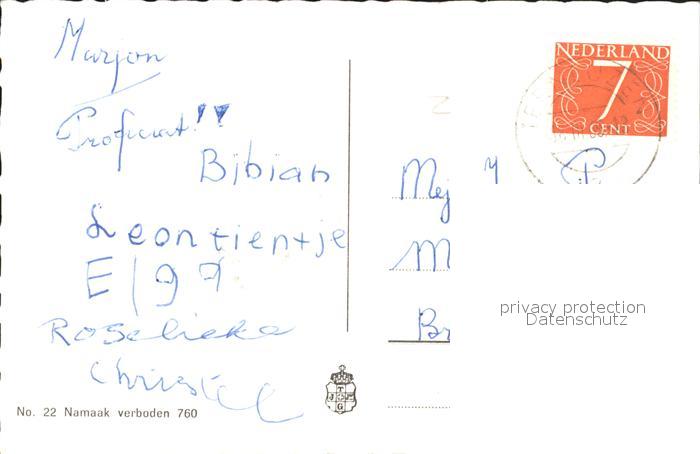 Marjon
Proficiat!!
Bibian
Leontientje
Christel
No. 22 Namaak verboden 760
NEDERLAND
7
CENT
Mej
M
Br
privacy protection
Datenschutz